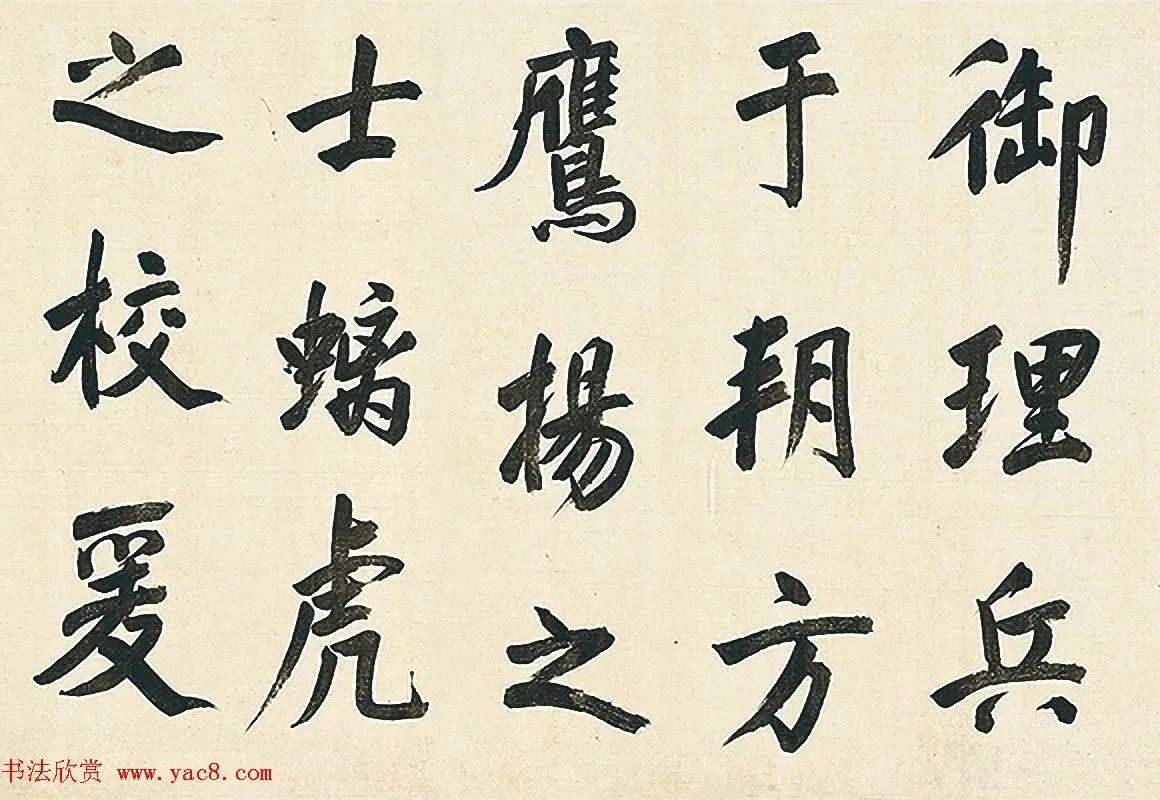 御理兵
于朔方
鷹揚之
士螭虎
之校爰
书法欣赏 www.yac8.com